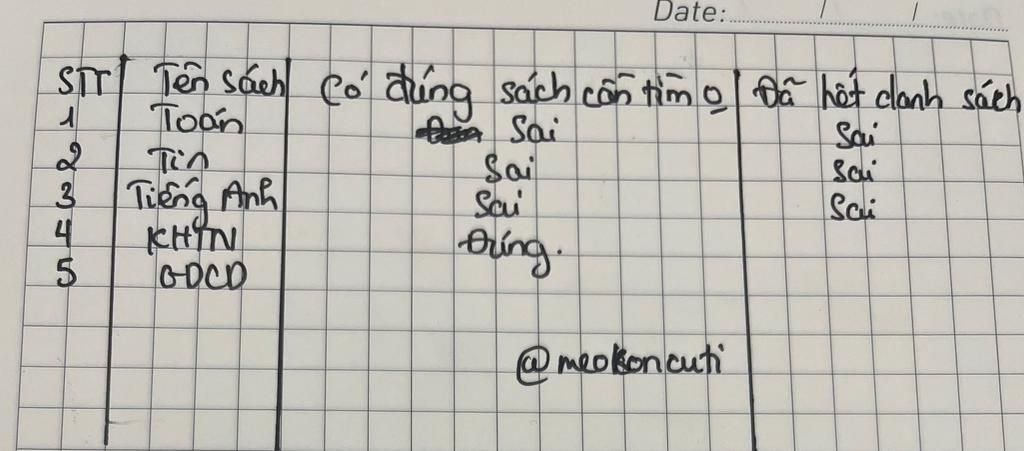 Date: / /
STT Tên sách Có đúng sách cần tìm o Đã hết danh sách
1 Toán Sai Sai
2 Tin Sai Sai
3 Tiếng Anh Sai Sai
4 KHTN Đúng.
5 GDCD
@meokoncuti